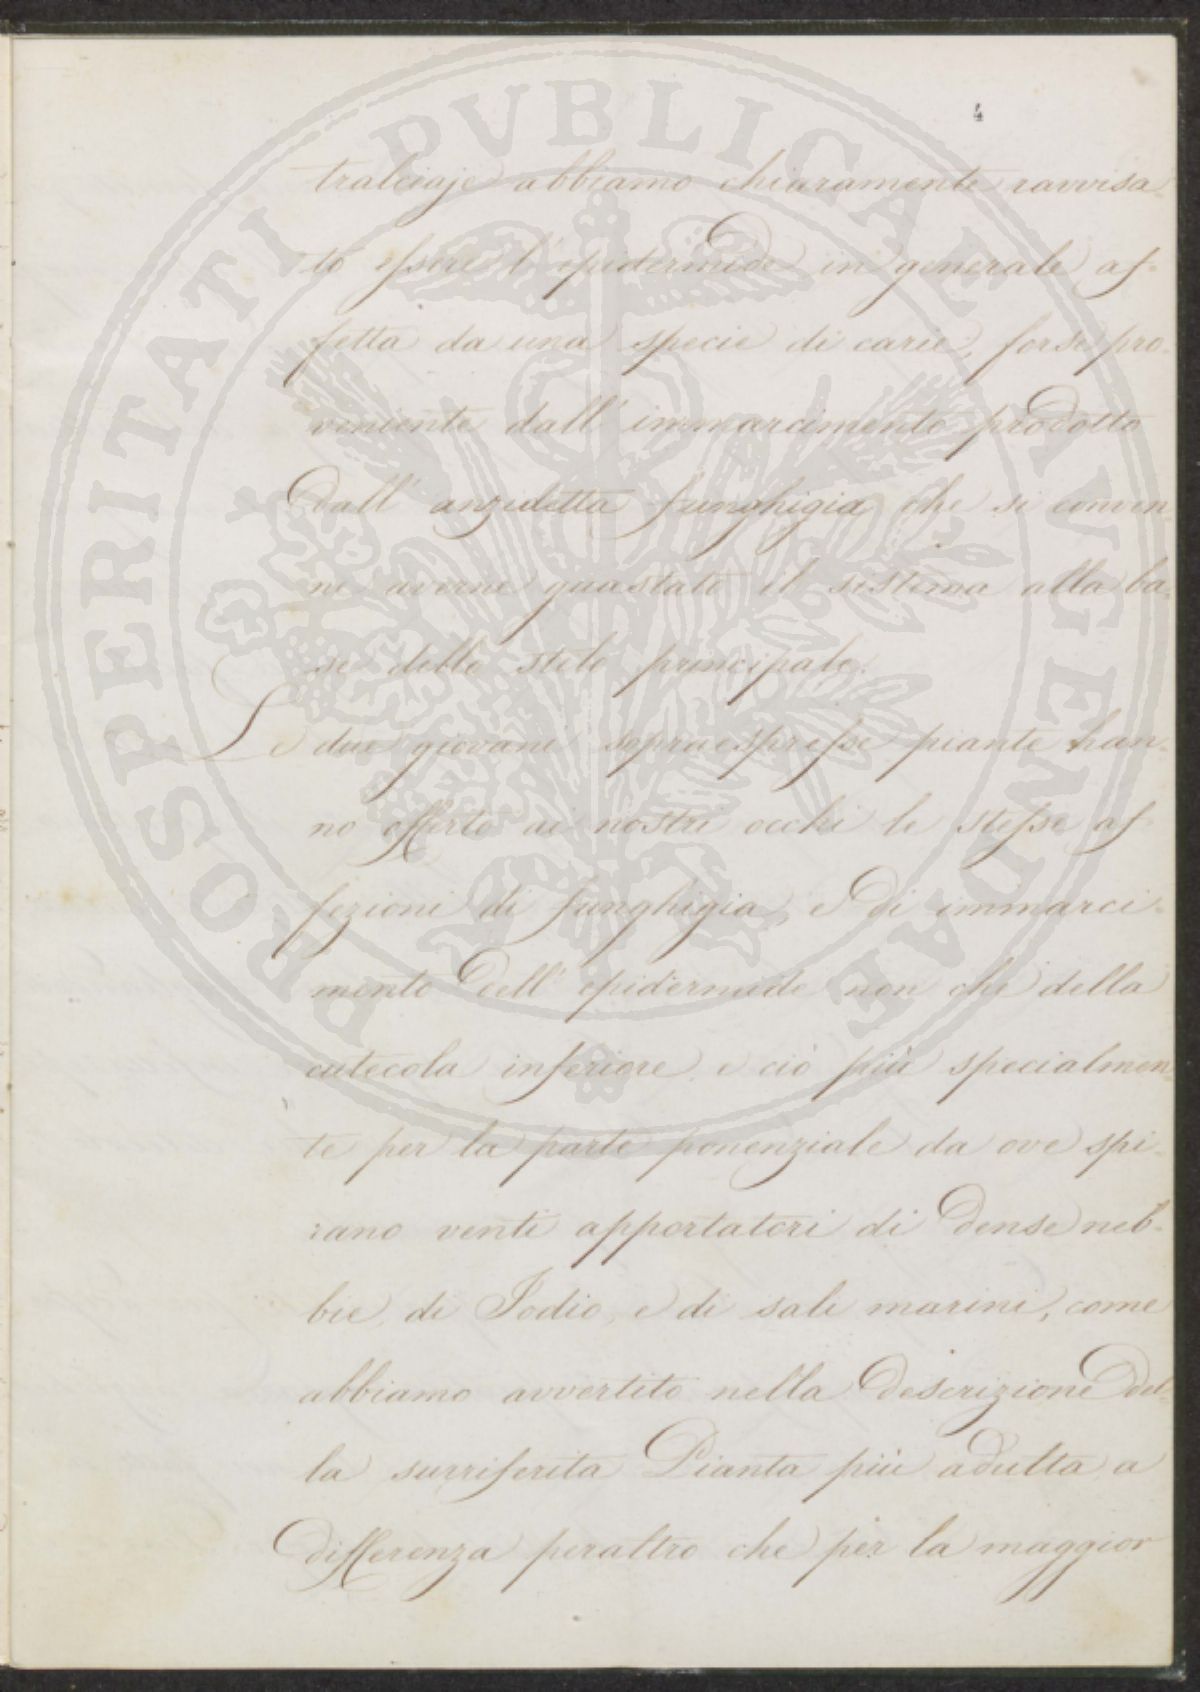 4
tralciaje abbiamo chiaramente ravvisa-
to essere l'epidermide in generale af-
fetta da una specie di carie, forse pro-
veniente dall'immarcimento prodotto
dall'anzidetta funghigia che si conven-
ne averne guastato il sistema alla ba-
se dello stelo principale.
Le due giovani sopraespresse piante han-
no offerto ai nostri occhi le stesse af-
fezioni di funghigia, e di immarci-
mento dell'epidermide non che della
cutecola inferiore e ciò più specialmen-
te per la parte ponenziale da ove spi-
rano venti apportatori di dense neb-
bie, di Jodio, e di sali marini, come
abbiamo avvertito nella descrizione del-
la surriferita Pianta più adulta, a
differenza peraltro che per la maggior
PROSPERITATI PVBLICAE AVGENDAE